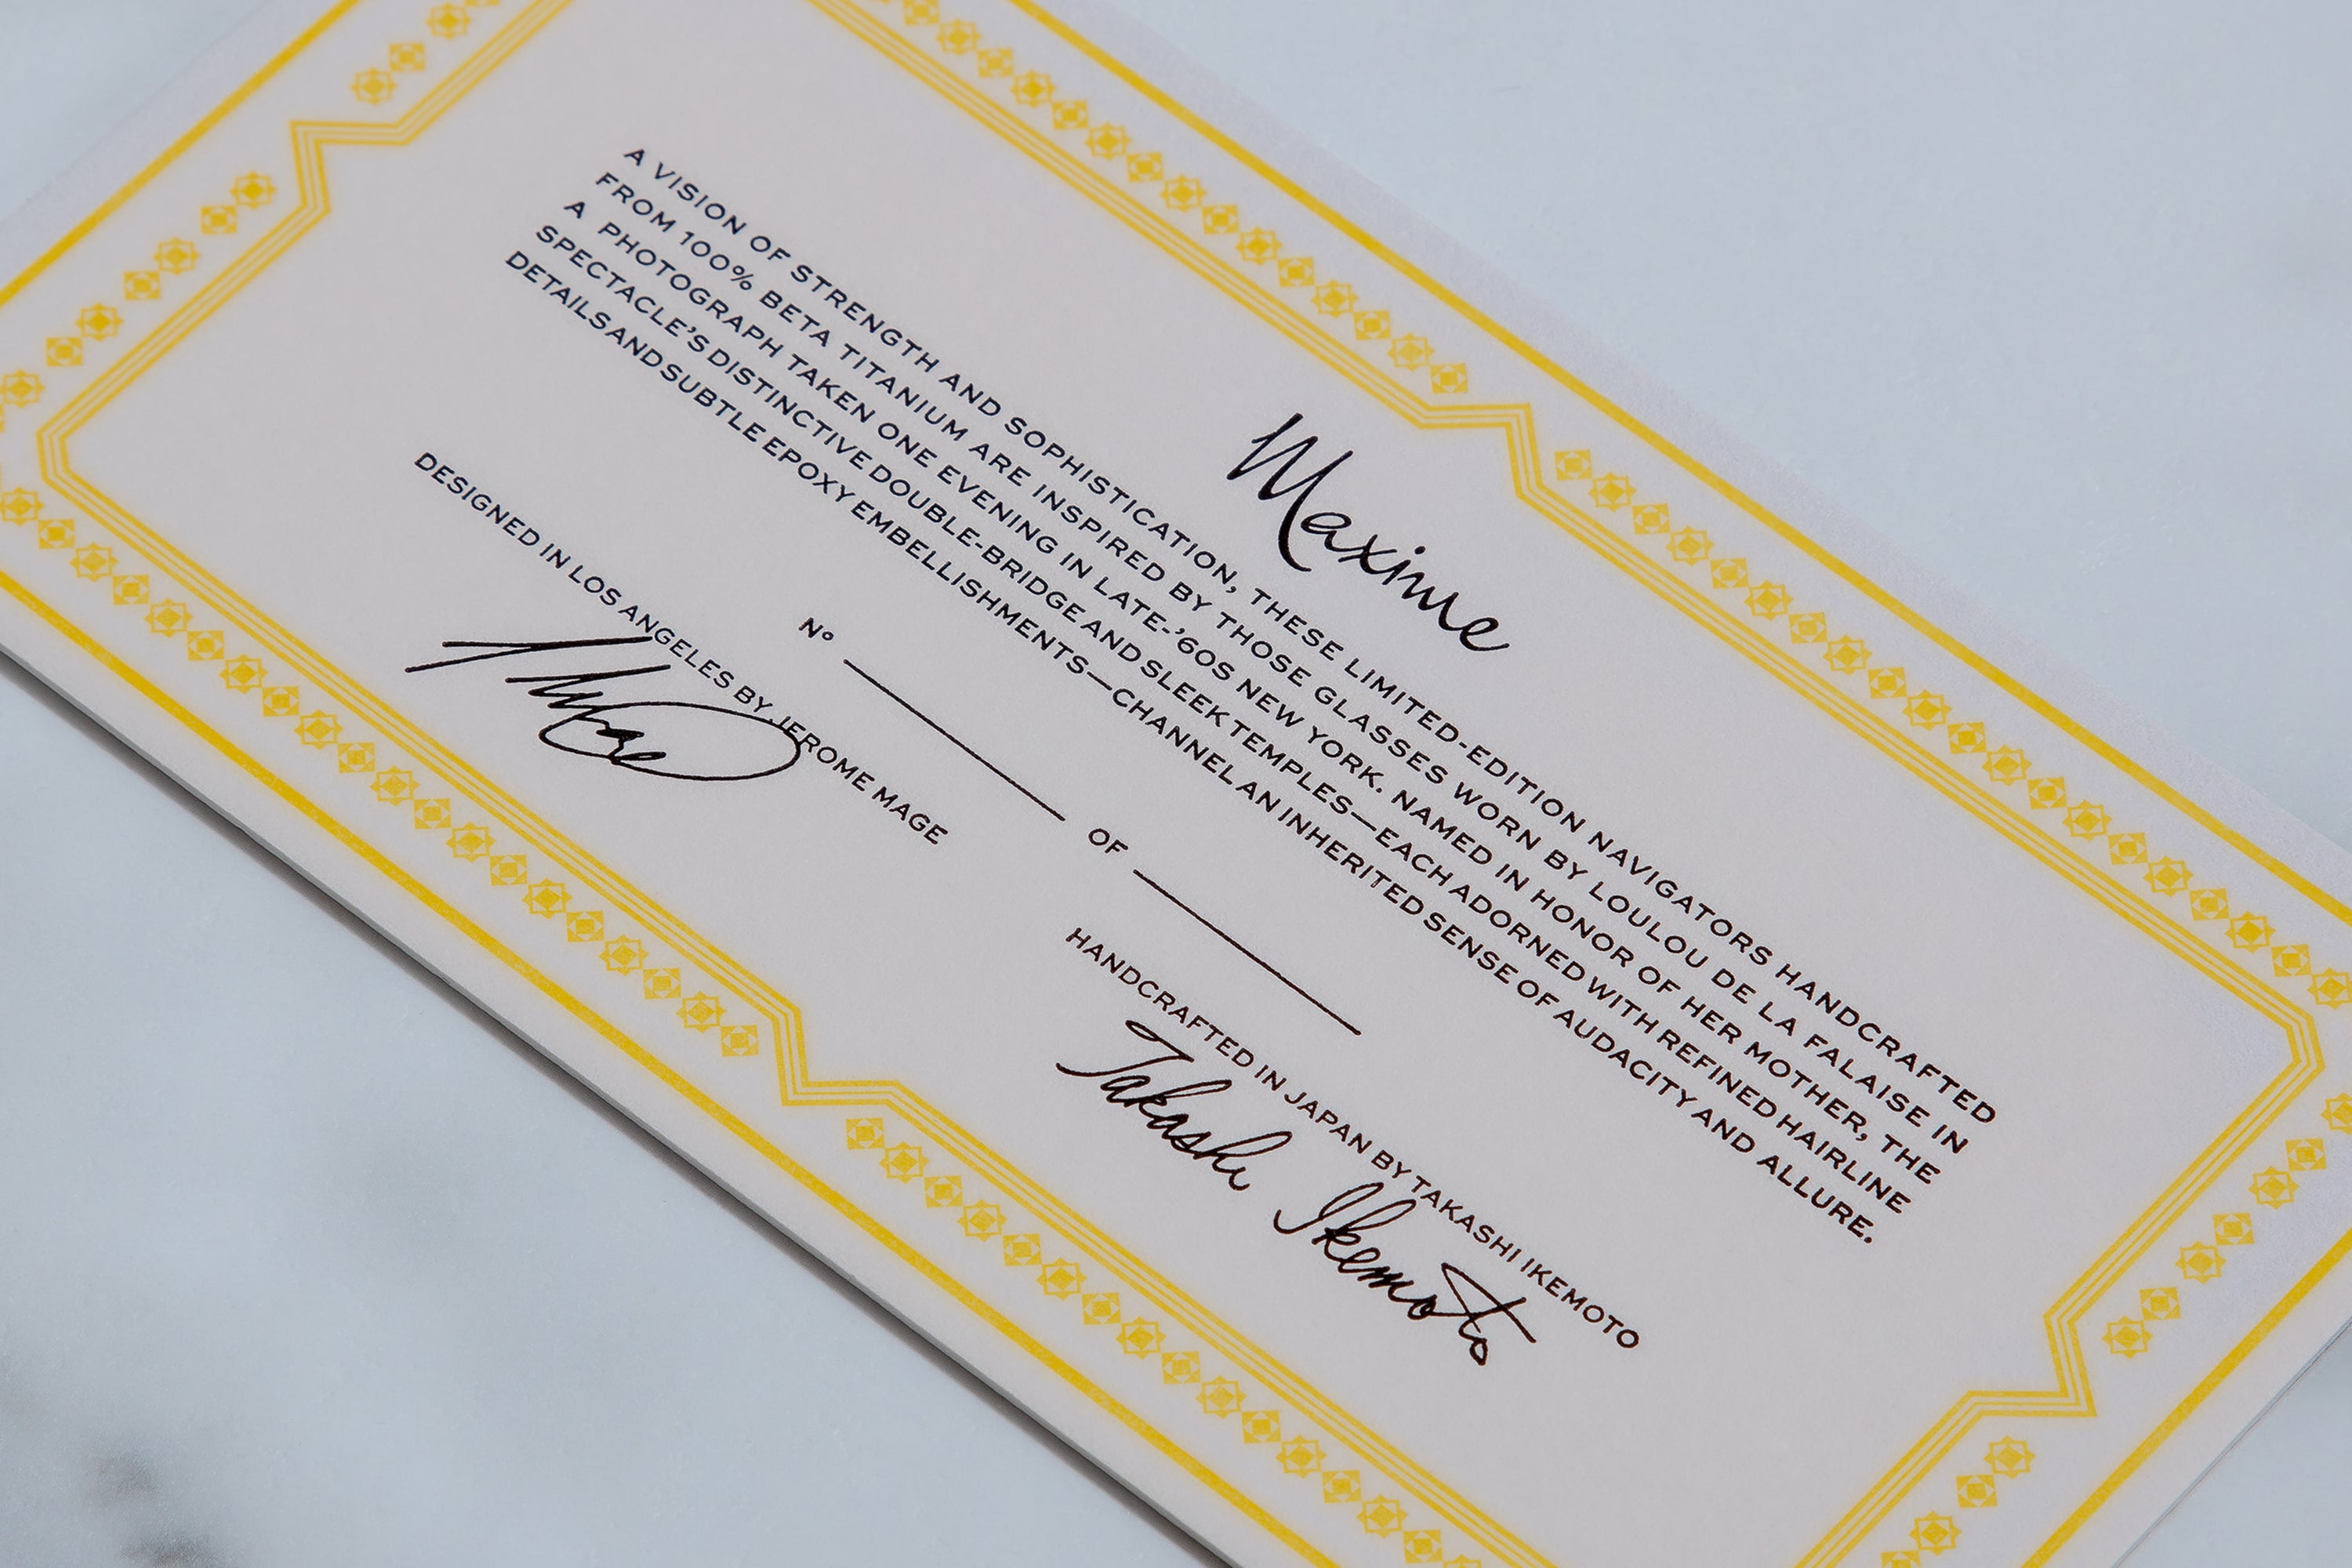 Maxime
A VISION OF STRENGTH AND SOPHISTICATION, THESE LIMITED-EDITION NAVIGATORS HANDCRAFTED
FROM 100% BETA TITANIUM ARE INSPIRED BY THOSE GLASSES WORN BY LOULOU DE LA FALAISE IN
A PHOTOGRAPH TAKEN ONE EVENING IN LATE-’60S NEW YORK. NAMED IN HONOR OF HER MOTHER, THE
SPECTACLE’S DISTINCTIVE DOUBLE-BRIDGE AND SLEEK TEMPLES—EACH ADORNED WITH REFINED HAIRLINE
DETAILS AND SUBTLE EPOXY EMBELLISHMENTS—CHANNEL AN INHERITED SENSE OF AUDACITY AND ALLURE.
Nº ____ OF ____
DESIGNED IN LOS ANGELES BY JEROME MAGE
HANDCRAFTED IN JAPAN BY TAKASHI IKEMOTO
Takashi Ikemoto